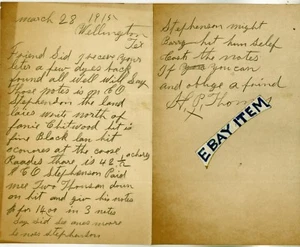 march 28 1915
Wellington
Tex
Friend Sid I recev your
leter a few Dayes back
found all well will Say
those notes is on E O
Stephenson the land
laies west north of
Chitwood hit is
fine Black lan hit
at the
Roades thare, is 48
E O Stephenson Paid
mee Two Thousan down
on hit and giv his notes
for 1400 in 3 notes
Say Sid
Stephenson
Stephenson might
Carry hit him Self
Cash the notes
If you can
and oblige a friend
H. P. Thom
EBAY ITEM